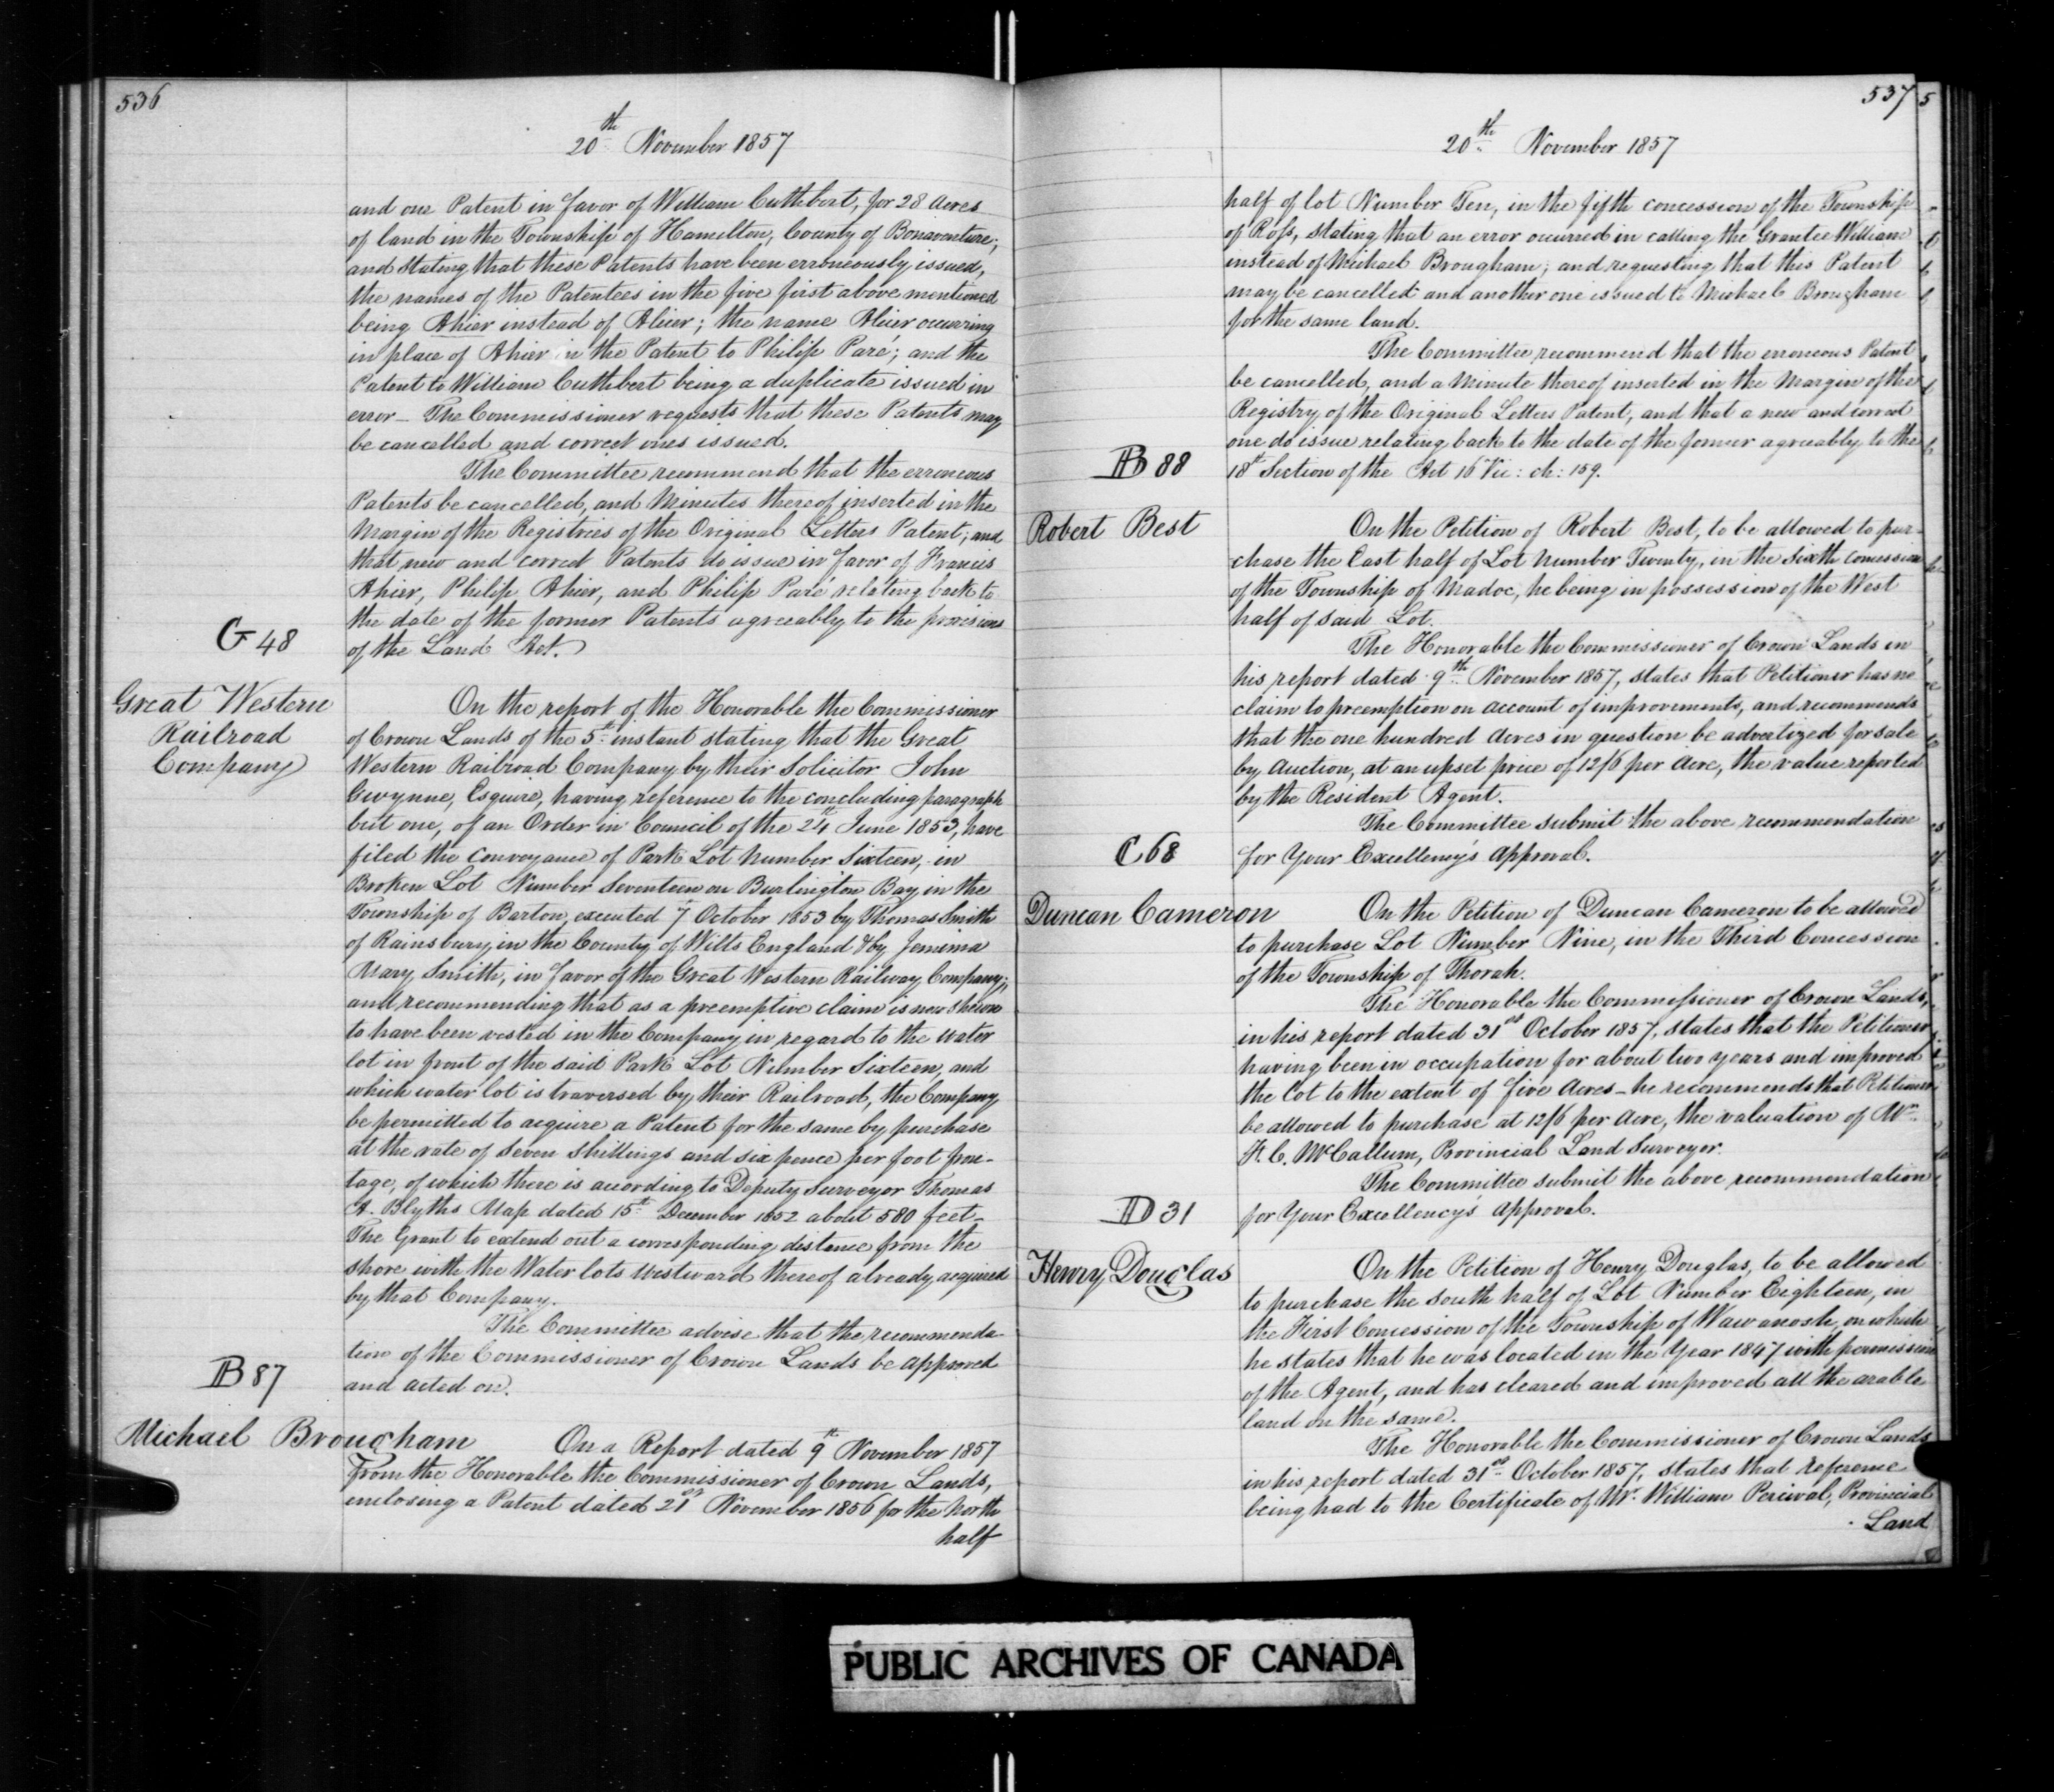 536
20th November 1857
and one Patent in favor of William Cuthbert, for 28 Acres
of land in the Township of Hamilton, County of Bonaventure;
and stating that these Patents have been erroneously issued,
the names of the Patentees in the five first above mentioned
being Ahier instead of Alier; the name Alier occurring
in place of Ahier in the Patent to Philip Paré; and the
Patent to William Cuthbert being a duplicate issued in
error – The Commissioner requests that these Patents may
be cancelled and correct ones issued.
The Committee recommend that the erroneous
Patents be cancelled, and Minutes thereof inserted in the
Margin of the Registries of the Original Letters Patent; and
that new and correct Patents do issue in favor of Francis
Ahier, Philip Ahier, and Philip Paré relating back to
the date of the former Patents agreeably to the provisions
G 48
of the Land Act.
Great Western
Railroad
Company
On the report of the Honorable the Commissioner
of Crown Lands of the 5th instant stating that the Great
Western Railroad Company by their Solicitor John
Gwynne, Esquire, having reference to the concluding paragraph
but one, of an Order in Council of the 24th June 1853, have
filed the conveyance of Park Lot Number Sixteen, in
Broken Lot Number Seventeen on Burlington Bay, in the
Township of Barton, executed 7th October 1853 by Thomas Smith
of Rainsbury, in the County of Wilts England & by Jemima
Mary Smith, in favor of the Great Western Railway Company;
and recommending that as a preemptive claim is now shewn
to have been vested in the Company in regard to the water
lot in front of the said Park Lot Number Sixteen, and
which water lot is traversed by their Railroad, the Company
be permitted to acquire a Patent for the same by purchase
at the rate of seven shillings and six pence per foot fron-
tage, of which there is according to Deputy Surveyor Thomas
A. Blyths Map dated 15th December 1852 about 580 feet –
The Grant to extend out a corresponding distance from the
shore with the Water lots Westward thereof already acquired
by that Company.
The Committee advise that the recommenda-
tion of the Commissioner of Crown Lands be approved
B 87
and acted on.
Michael Brougham
On a Report dated 9th November 1857
from the Honorable the Commissioner of Crown Lands,
enclosing a Patent dated 21st November 1856 for the North
half
537
20th November 1857
half of lot Number Ten, in the fifth concession of the Township
of Ross, stating that an error occurred in calling the Grantee William
instead of Michael Brougham; and requesting that this Patent
may be cancelled and another one issued to Michael Brougham
for the same land.
The Committee recommend that the erroneous Patent
be cancelled, and a Minute thereof inserted in the Margin of the
Registry of the Original Letters Patent, and that a new and correct
one do issue relating back to the date of the former agreeably to the
B 88
18th Section of the Act 16 Vic: ch: 159.
Robert Best
On the Petition of Robert Best, to be allowed to pur-
chase the East half of Lot Number Twenty, in the Sixth Concession
of the Township of Madoc, he being in possession of the West
half of said Lot.
The Honorable the Commissioner of Crown Lands in
his report dated 9th November 1857, states that Petitioner has no
claim to preemption on account of improvements, and recommends
that the one hundred Acres in question be advertized for sale
by Auction, at an upset price of 12/6 per Acre, the value reported
by the Resident Agent.
The Committee submit the above recommendation
C 68
for Your Excellency's approval.
Duncan Cameron
On the Petition of Duncan Cameron to be allowed
to purchase Lot Number Nine, in the Third Concession
of the Township of Thorah.
The Honorable the Commissioner of Crown Lands,
in his report dated 31st October 1857, states that the Petitioner
having been in occupation for about two years and improved
the lot to the extent of five Acres – he recommends that Petitioner
be allowed to purchase at 12/6 per Acre, the valuation of Mr.
McCallum, Provincial Land Surveyor.
The Committee submit the above recommendation
D 31
for Your Excellency's approval.
Henry Douglas
On the Petition of Henry Douglas, to be allowed
to purchase the South half of Lot Number Eighteen, in
the First Concession of the Township of Wawanosh, on which
he states that he was located in the Year 1847 with permission
of the Agent, and has cleared and improved all the arable
land on the same.
The Honorable the Commissioner of Crown Lands
in his report dated 31st October 1857, states that reference
being had to the Certificate of Mr. William Percival, Provincial
Land
PUBLIC ARCHIVES OF CANADA